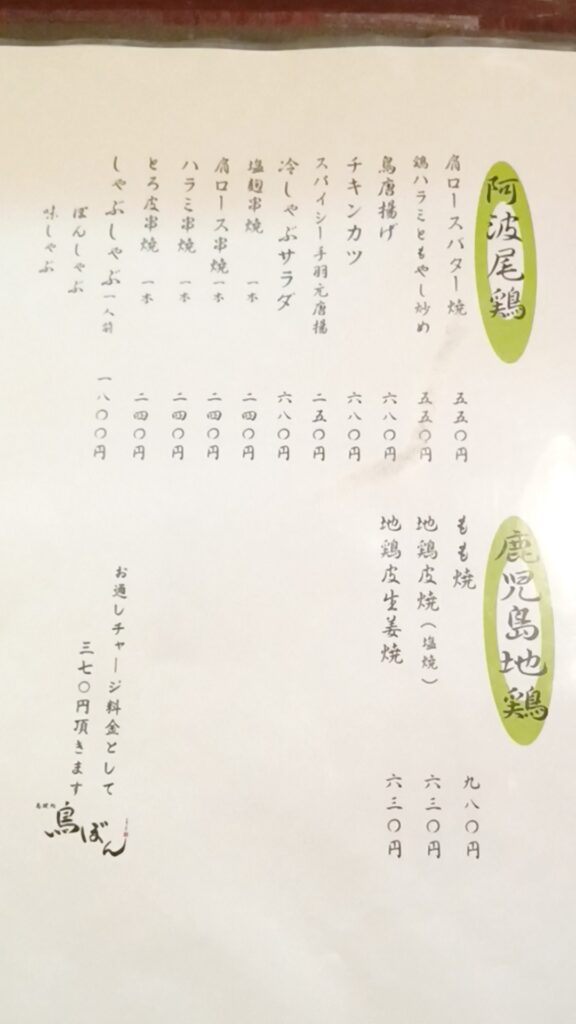 阿波尾鶏
肩ロースバター焼 五五〇円
鶏ハラミともやし炒め 五五〇円
鳥唐揚げ 六八〇円
チキンカツ 六八〇円
スパイシー手羽元唐揚 二五〇円
冷しゃぶサラダ 六八〇円
塩麹串焼 一本 二四〇円
肩ロース串焼 一本 二四〇円
ハラミ串焼 一本 二四〇円
とろ皮串焼 一本 二四〇円
しゃぶしゃぶ 一人前 一八〇〇円
ぽんしゃぶ
味しゃぶ
鹿児島地鶏
もも焼 九八〇円
地鶏皮焼(塩焼) 六三〇円
地鶏皮生姜焼 六三〇円
お通しチャージ料金として
三七〇円頂きます
鳥ぼん